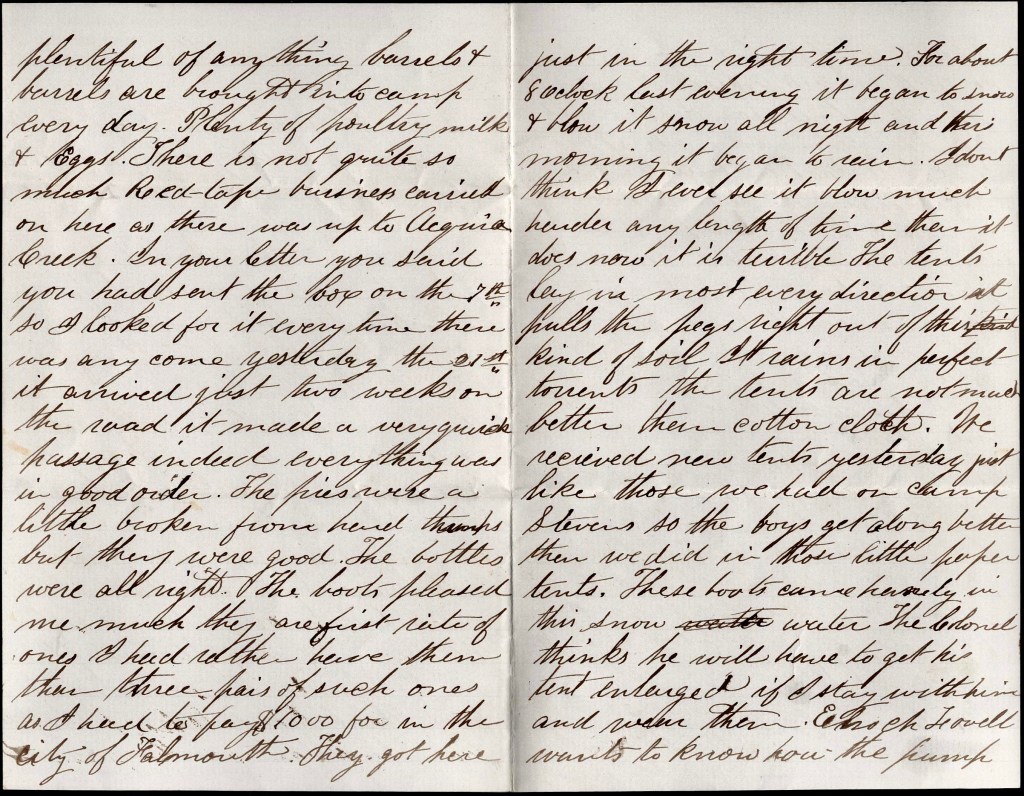 plentiful of anything barrels &
barrels are brought into camp
every day. Plenty of poultry milk
& Eggs. There is not quite so
much Red-tape business carried
on here as there was up to Acquia
Creek. In your letter you said
you had sent the box on the 7th
so I looked for it every time there
was any come yesterday the 21st
it arrived just two weeks on
the road it made a very quick
passage indeed everything was
in good order. The pies were a
little broken from hard thumps
but they were good. The bottles
were all right. The boots pleased
me much they are first rate of
ones I had rather have them
than three pair of such ones
as I had to pay $1000 for in the
city of Falmouth. They got here
just in the right time. For about
8 oclock last evening it began to snow
& blow it snow all nigth and this
morning it began to rain. I dont
think I ever see it blow much
harder any length of time than it
does now it is terible The tents
lay in most every direction it
pulls the pegs right out of this
kind of soil It rains in perfect
torrents the tents are not much
better then cotton cloth. We
recieved new tents yesterday just
like those we had on camp
Stevens so the boys get along better
then we did in those little paper
tents. These boots came handy in
this snow water The Colonel
thinks he will have to get his
tent enlarged if I stay with him
and wear them. Enoch Lovell
wants to know how the pump